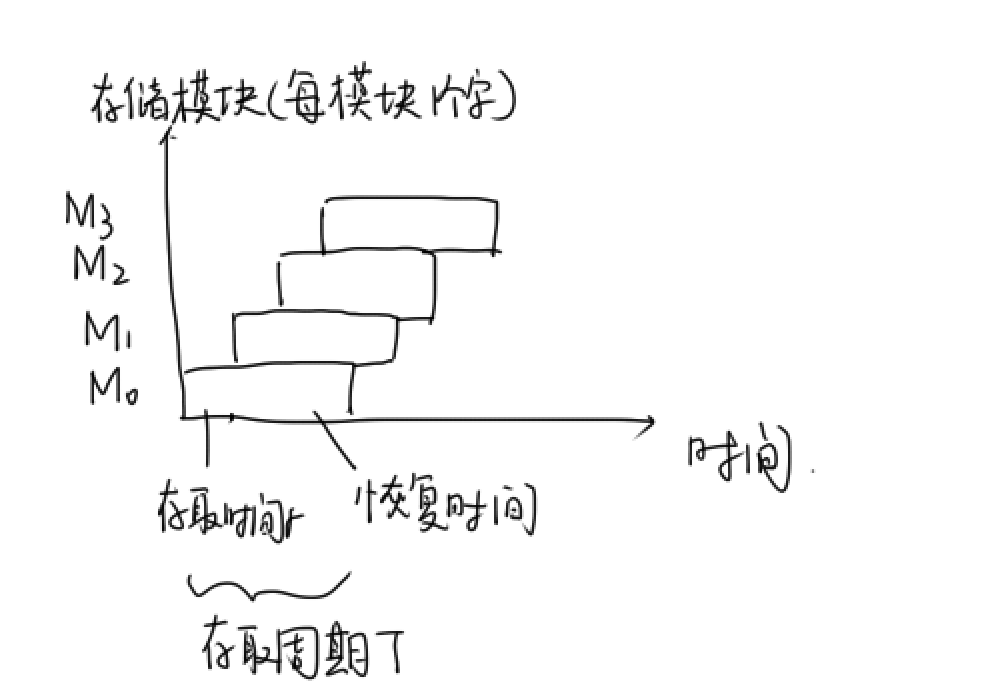 存储模块(每模块1个字)
M3
M2
M1
M0
时间
存取时间r
恢复时间
存取周期T